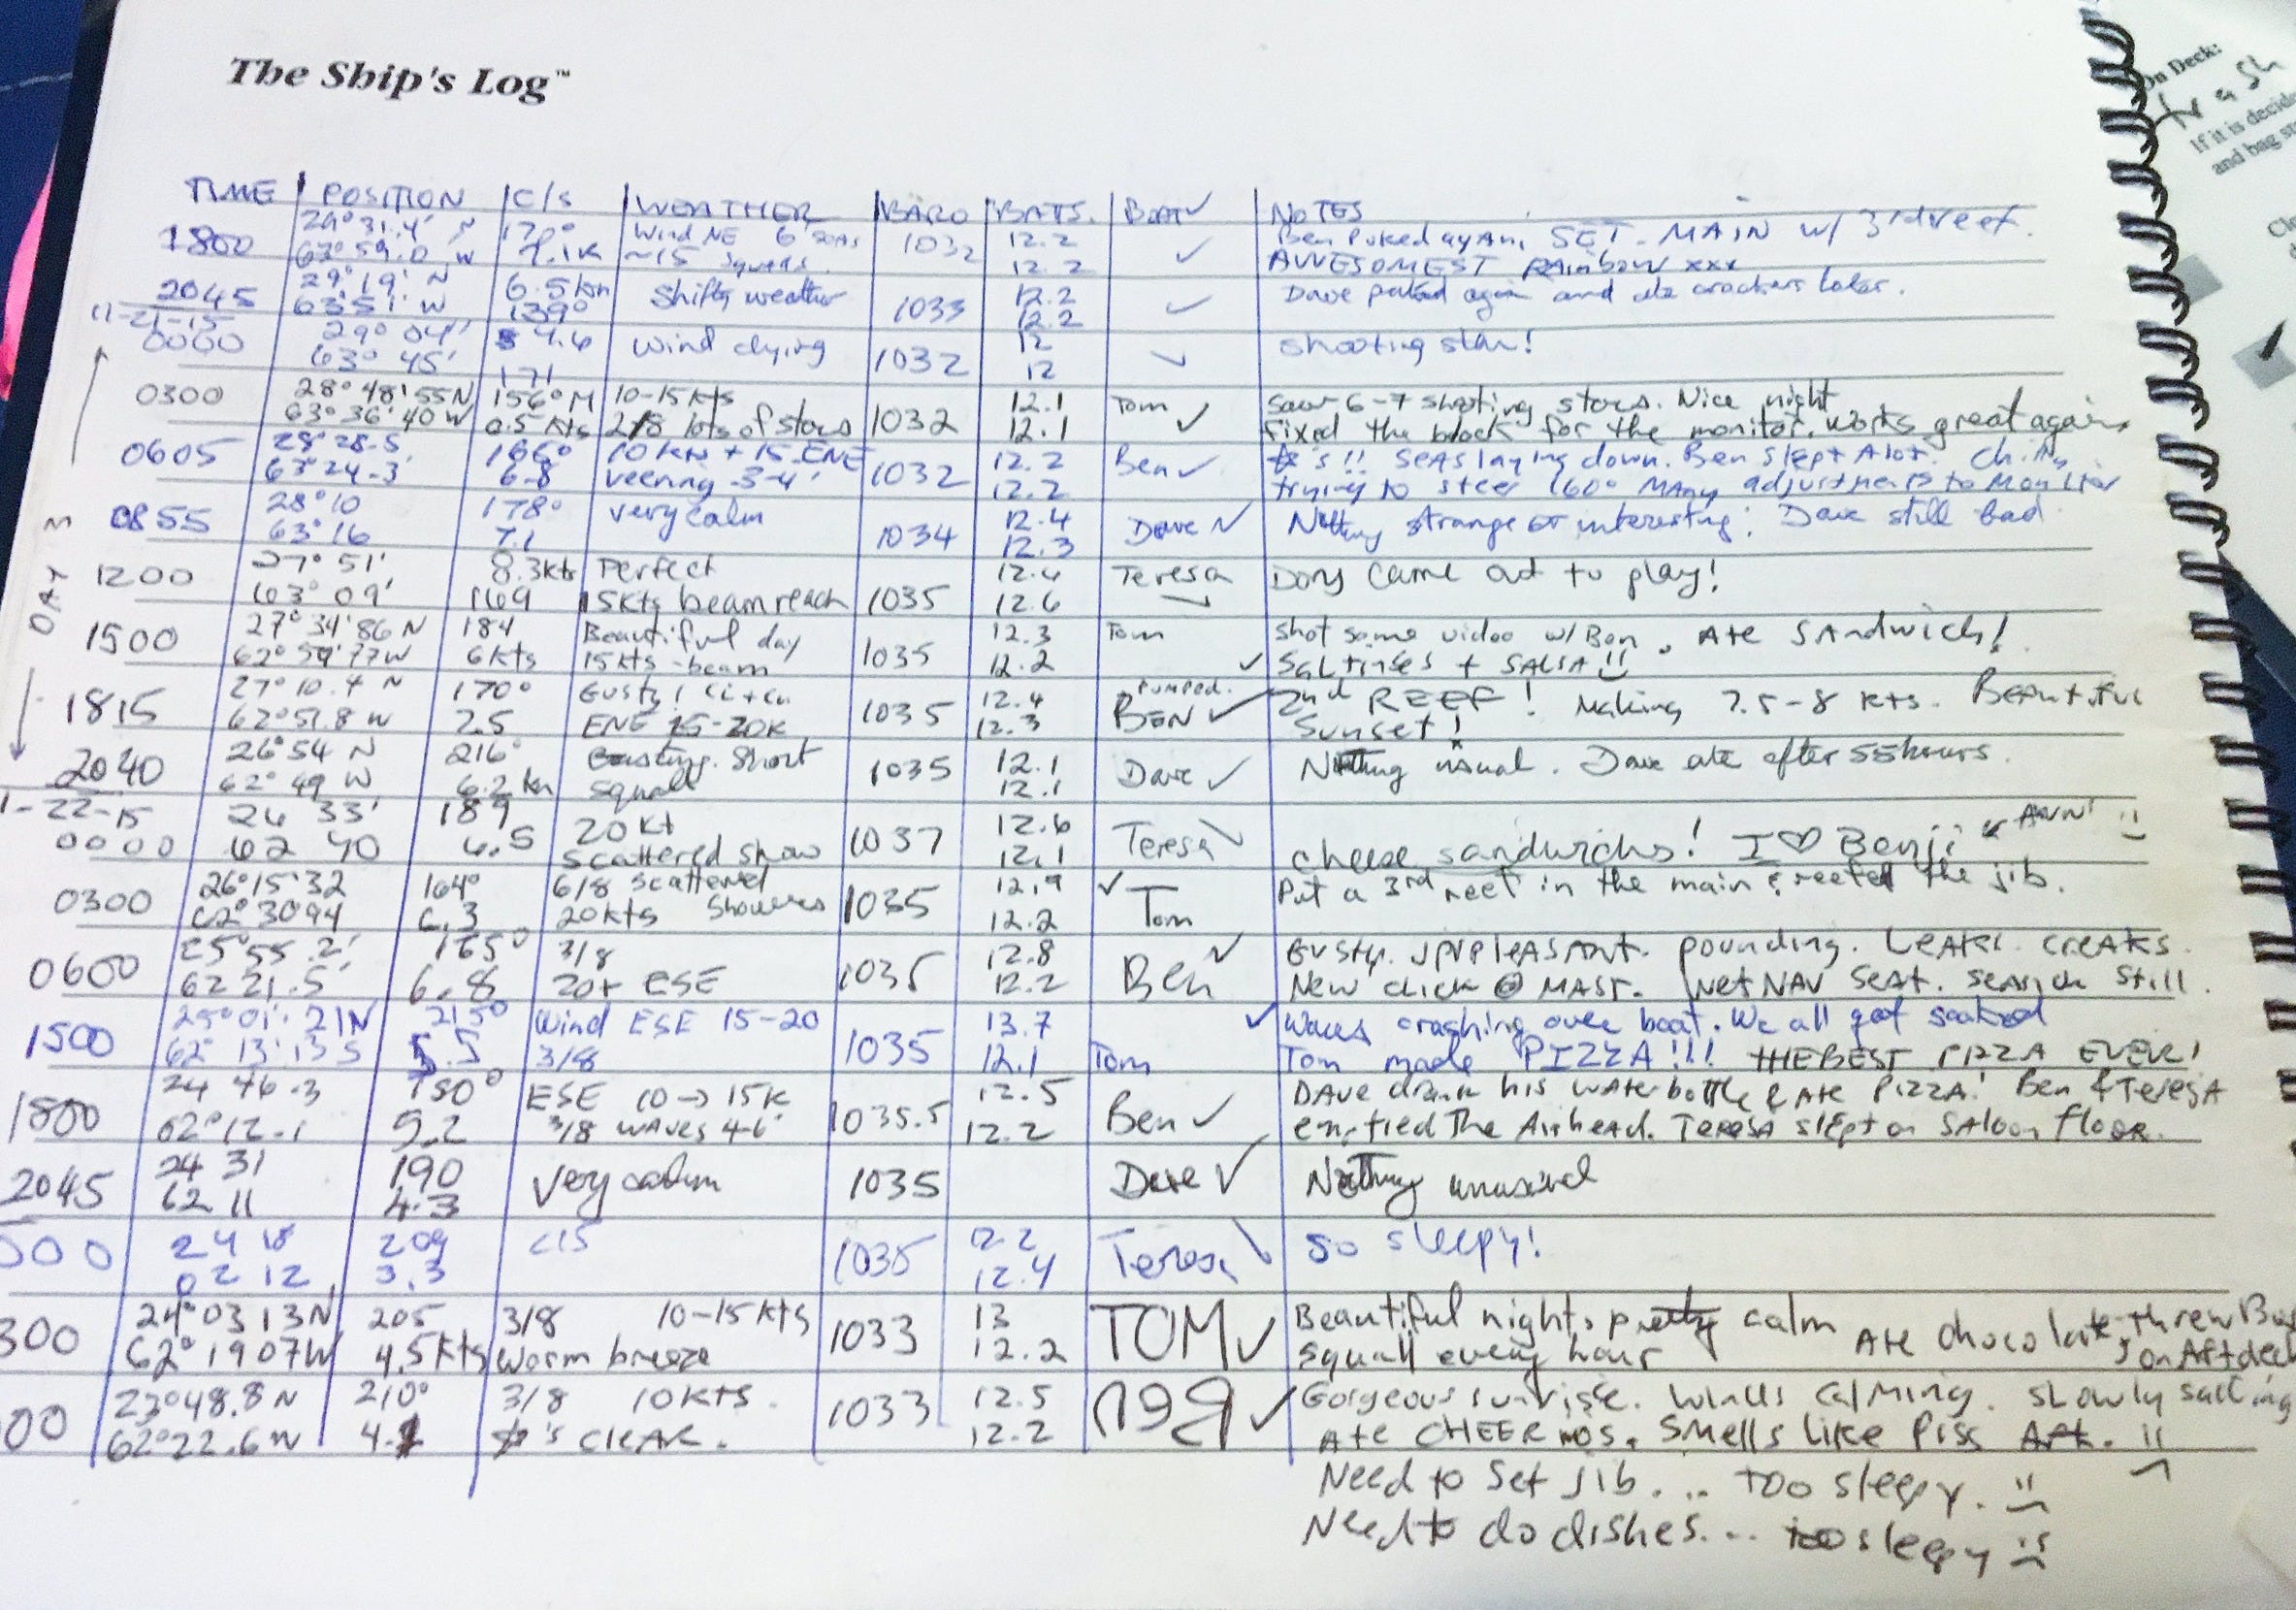 The Ship's Log™
On Deck:
trash
If it is decid
and bag
TIME POSITION C/S WEATHER BARO BATS. BOAT✓ NOTES
1800 29°31.4' N 170° Wind NE 6' seas 1032 12.2 ✓ Ben Puked again, SET MAIN W/ 3rd reef.
63°59.0 W 7.1K ~15 squalls. 12.2 AWESOMEST RAinbow xxx
2045 29°19' N 6.5kn Shifty weather 1033 12.2 ✓ Dave puked again and ate crackers later.
63°51' W 139° 12.2
11-21-15
0000 29° 04' 4.6 wind dying 1032 12 ✓ shooting star!
63° 45' 171 12
0300 28°48'55N 156°M 10-15kts 1032 12.1 Tom ✓ Saw 6-7 shooting stars. Nice night
63°36'40W 6.5 kts 2/8 lots of stars 12.1 fixed the block for the monitor. works great again
DAY 3
0605 28°28.5' 166° 10kts + 15 ENE 1032 12.2 Ben ✓ ☆'s!! SEAS laying down. Ben slept Alot.
63°24.3' 6.8 veering 3-4' 12.2 trying to steer 160° MANy adjustments to Monitor
0855 28°10 178° very calm 1034 12.4 Dave ✓ Nothing strange or interesting. Dave still bad.
63°16 7.1 12.3
1200 27° 51' 8.3kts Perfect 1035 12.4 Teresa ✓ Dory came out to play!
63° 09' 169 15kts beam reach 12.6
1500 27°34'86N 184 Beautiful day 1035 12.3 Tom ✓ Shot some video w/Ben. Ate SANdwich!
62°59'77W 6kts 15kts-beam 12.2 SALTines + SALSA
1815 27°10.4 N 170° Gusty! Ci+Cu 1035 12.4 pumped. BEN ✓ 2nd REEF! Making 7.5-8 kts. BEAutiful
62°51.8 W 7.5 ENE 15-20K 12.3 Sunset!
2040 26°54 N 216° Short 1035 12.1 Dave ✓ Nothing usual. Dave ate after 55hours.
62°49 W 6.2kn squall 12.1
1-22-15
0000 26 33' 189 20kt 1037 12.6 Teresa ✓ cheese sandwichs! I ♡ Benji "Awn"
62 40 6.5 scattered show 12.1
0300 26°15'32 164° 6/8 scattered 1035 12.9 ✓ Tom Put a 3rd reef in the main & reefed the jib.
62°3094 6.3 20kts Showers 12.2
0600 25°55.2' 165° 3/8 1035 12.8 Ben ✓ Gusty. UnpleASAnt. pounding. LEAKs. creaks.
62 21.5' 6.8 20+ ESE 12.2 New click @ MAST. Wet NAV SEAT. search still.
1500 25°01.21N 215° Wind ESE 15-20 1035 13.7 Tom ✓ Waves crashing over boat. We all got soaked
62° 13'13 S 5.5 3/8 12.1 Tom made PIZZA!!! THE BEST PIZZA EVER!
1800 24 46.3 180° ESE 10→15K 1035.5 12.5 Ben ✓ DAVE drank his water bottle & Ate PIZZA! Ben & TeresA
62°12.1 5.2 3/8 WAVES 4-6' 12.2 emptied The Airhead. TeresA slept on SAloon floor.
2045 24 31 190 Very calm 1035 Dave ✓ Nothing unusual
62 11 4.3
000 24 18 209 <15 1035 12.2 Teresa ✓ So sleepy!
62 12 3.3 12.4
300 24°03 13N 205 3/8 10-15kts 1033 13 TOM ✓ Beautiful night, pretty calm Ate chocolate, threw
62° 1907W 4.5kts Warm breeze 12.2 squall every hour on Aft deck
00 23°48.8 N 210° 3/8 10KTS. 1033 12.5 Ben ✓ Gorgeous sunrise. Winds CAlMing. slowly sailing
62°22.6 W ☆'s CleAR. 12.2 Ate CHEERIOS. Smells like Piss Aft.
Need to set jib... too sleepy.
Need to do dishes... too sleepy